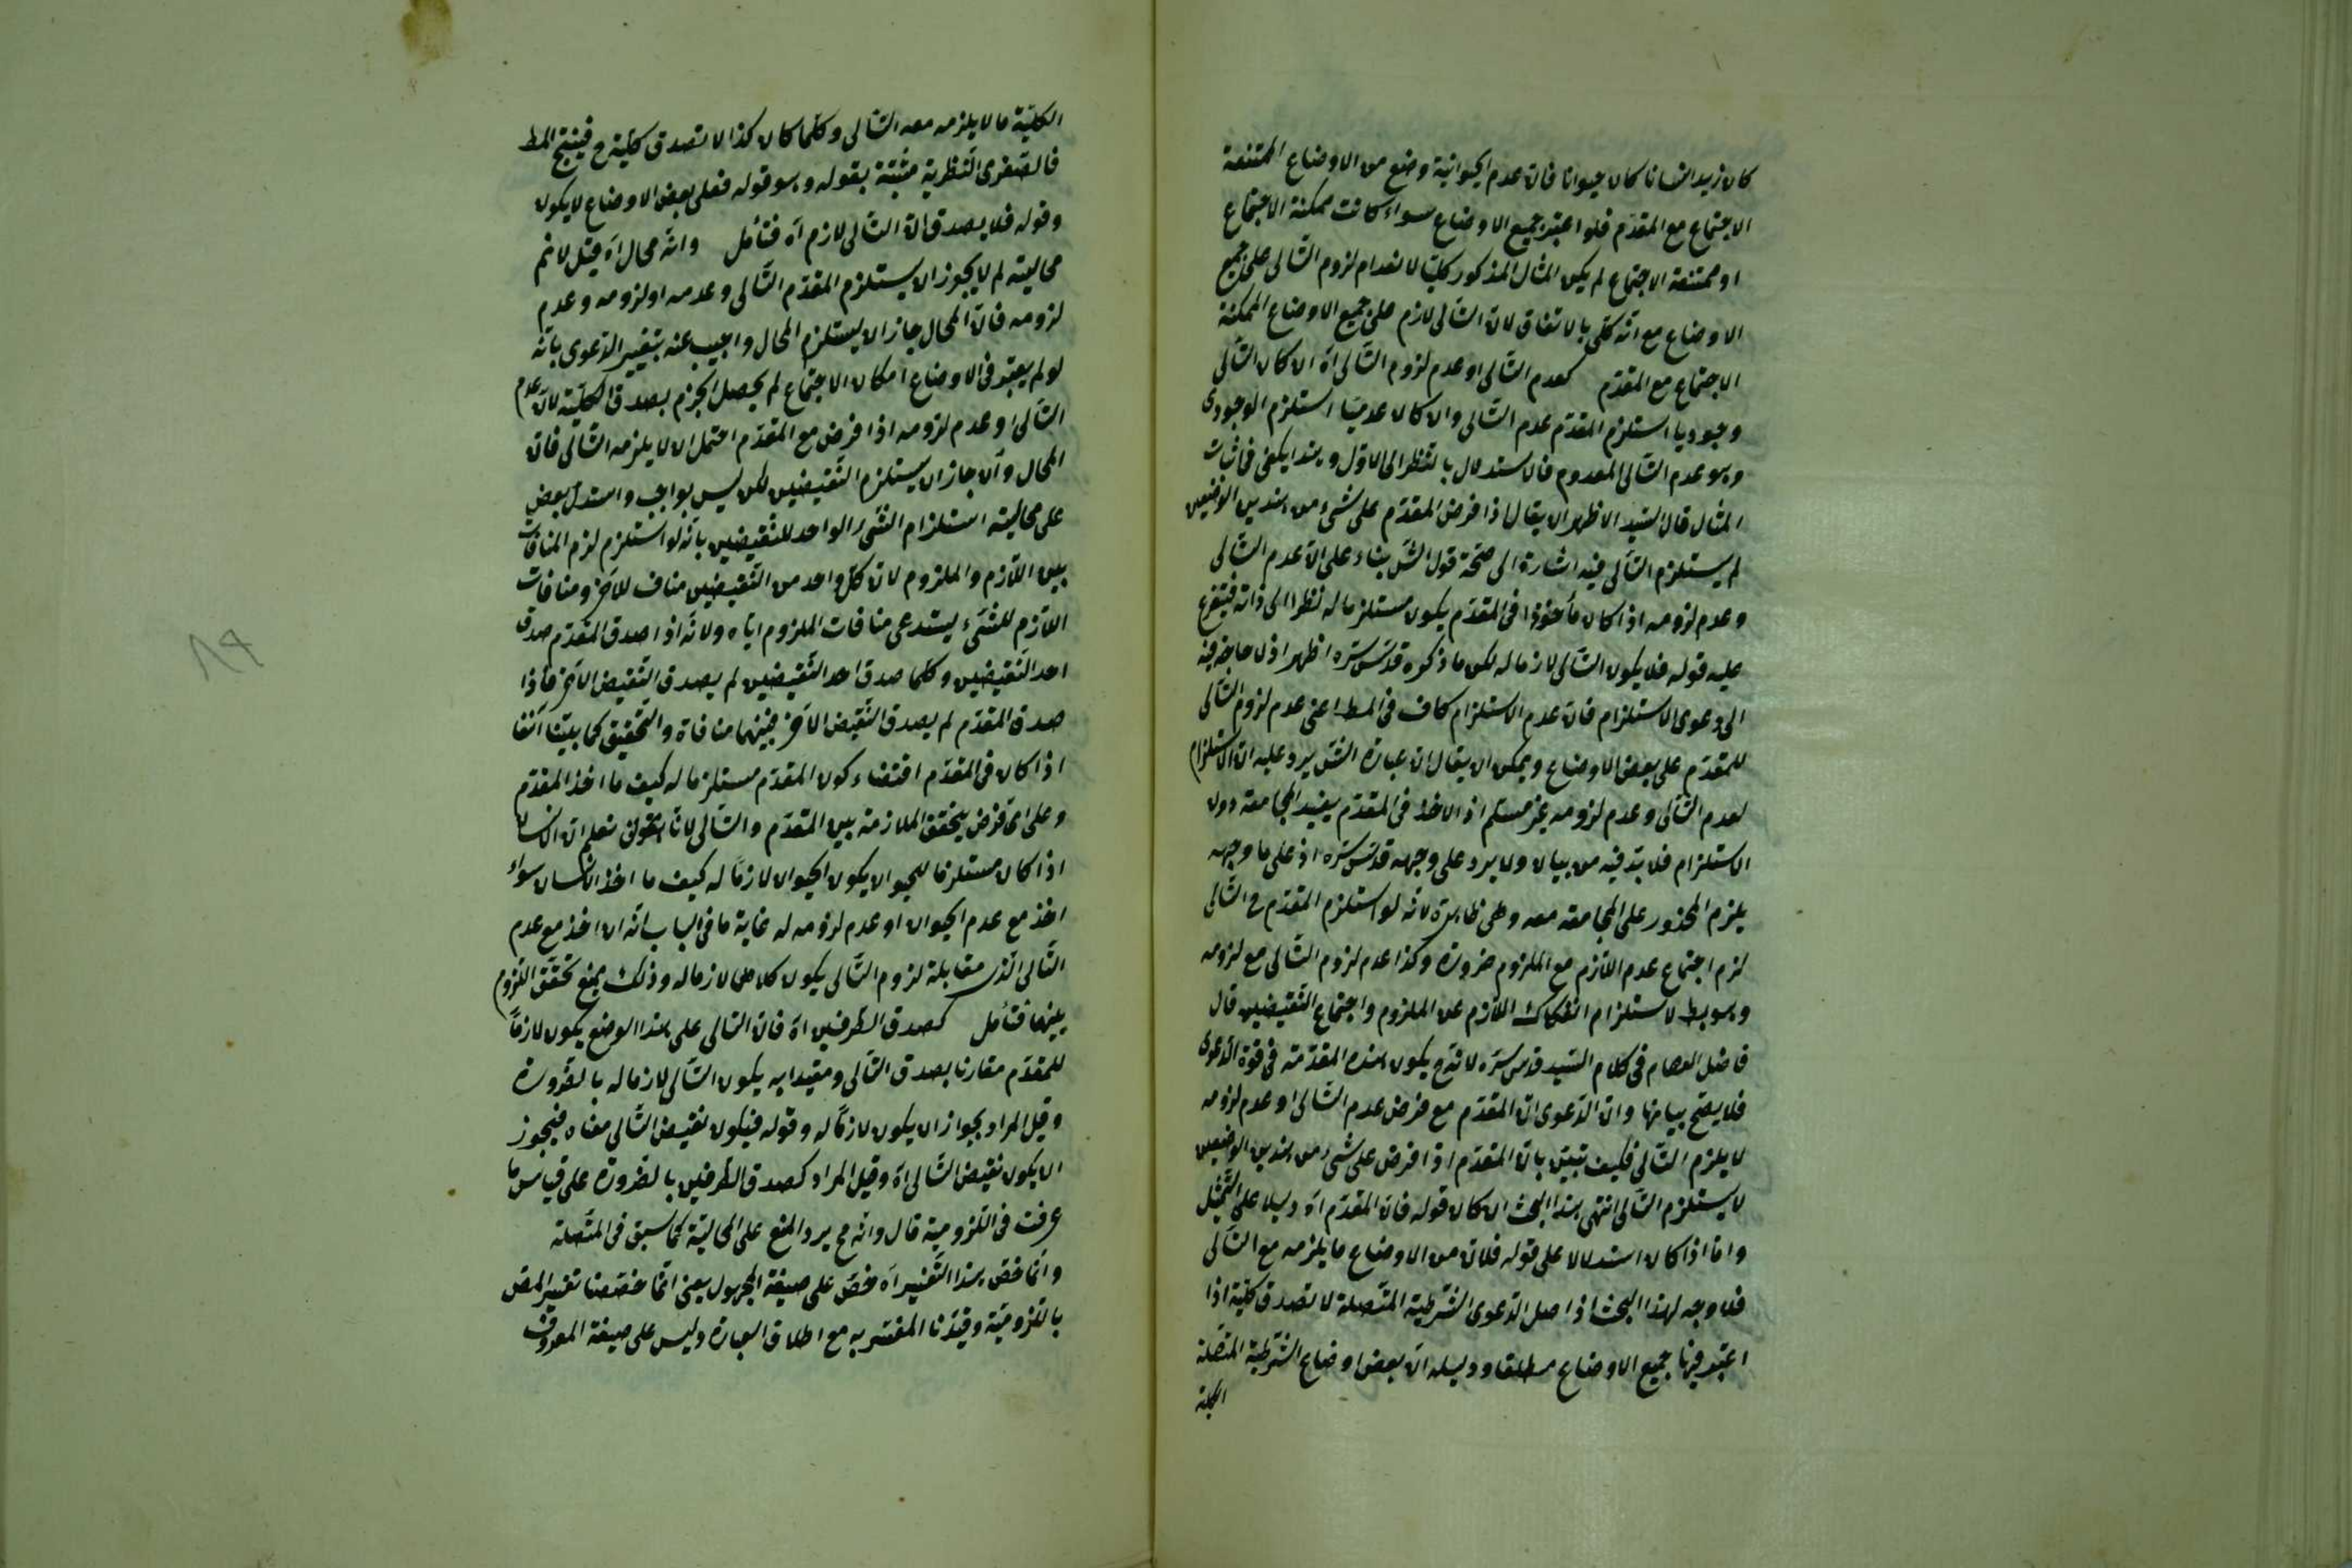 كان زيد انسانا كان حيوانا فان عدم الحيوانية وضع من الاوضاع الممتنعة
الاجتماع مع المقدّم فلو اعتبر جميع الاوضاع سواء كانت ممكنة الاجتماع
او ممتنعة الاجتماع لم يكن المثال المذكور كليّا لانعدام لزوم التّالى على جميع
الاوضاع مع انّه كلّى بالاتفاق لانّ التّالى لازم على جميع الاوضاع الممكنة
الاجتماع مع المقدّم كعدم التّالى او عدم لزوم التّالى اه ان كان التّالى
وجوديا استلزم المقدّم عدم التّالى وان كان عدميّا استلزم الوجودى
وهو عدم التّالى المعدوم فالاستدلال بالنّظر الى الاوّل وهذا يكفى فى اثبات
المثال قال السّيد الاظهر ان يقال اذا فرض المقدّم على شئ من هذين الوضعين
لم يستلزم التّالى فيه اشارة الى صحّة قول الشّ بناء على انّ عدم التّالى
وعدم لزومه اذا كان مأخوذا فى المقدّم يكون مستلزما له نظرا الى ذاته فيتفرع
عليه قوله فلا يكون التّالى لازما له لكن ما ذكره قدّس سّره اظهر اذ لا حاجة فيه
الى دعوى الاستلزام فانّ عدم الاستلزام كاف فى المط اعنى عدم لزوم التّالى
للمقدّم على بعض الاوضاع ويمكن ان يقال ان عبارة الشّ يرد عليه ان الاستلزام
لعدم التّالى وعدم لزومه غير مسلم اذ الاخذ فى المقدّم يفيد المجامعة دون
الاستلزام فلا بدّ فيه من بيان ولا يرد على وجهه قدّس سّره اذ على ما وجهه
يلزم المحذور على المجامعة معه وهى ظاهرة لانه لو استلزم المقدّم ح التّالى
لزم اجتماع عدم اللّازم مع الملزوم ضرورة وكذا عدم لزوم التّالى مع لزومه
وهو بط لاستلزام انفكاك اللّازم عن الملزوم واجتماع النّقيضين قال
فاضل العصام فى كلام السّيد قدس سّره لانّه ح يكون هذه المقدّمة فى قوة الدّعوى
فلا يصّح بيانها وانّ الدّعوى انّ المقدّم مع فرض عدم التّالى او عدم لزومه
لا يلزم التّالى فكيف تبيّن بانّ المقدّم اذا فرض على شئ من هذين الوضعين
لا يستلزم التّالى انتهى هذا البحث ان كان قوله فانّ المقدّم اه دليلا على التّمثيل
وامّا اذا كان استدلالا على قوله فلانّ من الاوضاع ما يلزمه مع التّالى
فلا وجه لهذا البحث اذ اصل الدّعوى الشّرطية المتّصلة لا تصدق كليّة اذا
اعتبر فيها جميع الاوضاع مطلقا ودليله انّ بعض اوضاع الشّرطية المتّصلة
الكلية
الكليّة ما لا يلزمه معه التّالى وكلّما كان كذا لا تصدق كليّة ح فينتج المط
فالصّغرى النّظرية مثبّتة بقوله وهو قوله فعلى بعض الاوضاع لا يكون
وقوله فلا يصدق انّ التّالى لازم اه فتأمل وانّه محال اه قيل لا نم
محاليته لم لا يجوز ان يستلزم المقدّم التّالى وعدمه او لزومه وعدم
لزومه فانّ المحال جاز ان يستلزم المحال واجيب عنه بتغيير الدّعوى بانّه
لو لم يعتبر فى الاوضاع امكان الاجتماع لم يحصل الجزم بصدق الكليّة لانّ عدم
التّالى او عدم لزومه اذا فرض مع المقدّم احتمل ان لا يلزمه التّالى فانّ
المحال وان جاز ان يستلزم النّقيضين لكن ليس بواجب واستدلّ بعض
على محالية استلزام الشّئ الواحد للنّقيضين بانّه لو استلزم لزم المنافات
بين اللّازم والملزوم لانّ كلّ واحد من النّقيضين مناف للاخر ومنافات
اللّازم للشّئ يستدعى منافات الملزوم ايّاه ولانّه اذا صدق المقدّم صدق
احد النّقيضين وكلما صدق احد النّقيضين لم يصدق النّقيض الآخر فاذا
صدق المقدّم لم يصدق النّقيض الآخر فبينهما منافاة والتّحقيق كما بيّنا آنفا
اذا كان فى المقدّم اقتضاء كون المقدّم مستلزما له كيف ما اخذ المقدّم
وعلى اى فرض يتحقق الملازمة بين المقدّم والتّالى لانا نقول نعلم ان الانسان
اذا كان مستلزما للحيوان يكون الحيوان لازمًا له كيف ما اخذ الانسان سواء
اخذ مع عدم الحيوان او عدم لزومه له غاية ما فى الباب انّه ان اخذ مع عدم
التّالى الّذى مقابلة لزوم التّالى يكون كلاهما لازما له وذلك يمنع تحقّق اللّزوم
بينهما فتأمل كصدق الطّرفين اه فانّ التّالى على هذا الوضع يكون لازمًا
للمقدّم مقارنا بصدق التّالى ومقيدا به يكون التّالى لازما له بالضّرورة
وقيل المراد بجواز ان يكون لازمًا له وقوله فيكون نقيض التّالى معناه فيجوز
ان يكون نقيض التّالى اه وقيل المراد كصدق الطّرفين بالضّرورة على قياس ما
عرفت فى اللّزومية قال وانّه ح يرد المنع على المحاليّة كما سبق فى المتّصلة
وانّما خصّ هذا التّفسير اه خصّ على صيغة المجهول يعنى انّما خصّصنا تفسير المص
باللّزوميّة وقيّدنا المفسّر به مع اطلاق العبارة وليس على صيغة المعروف